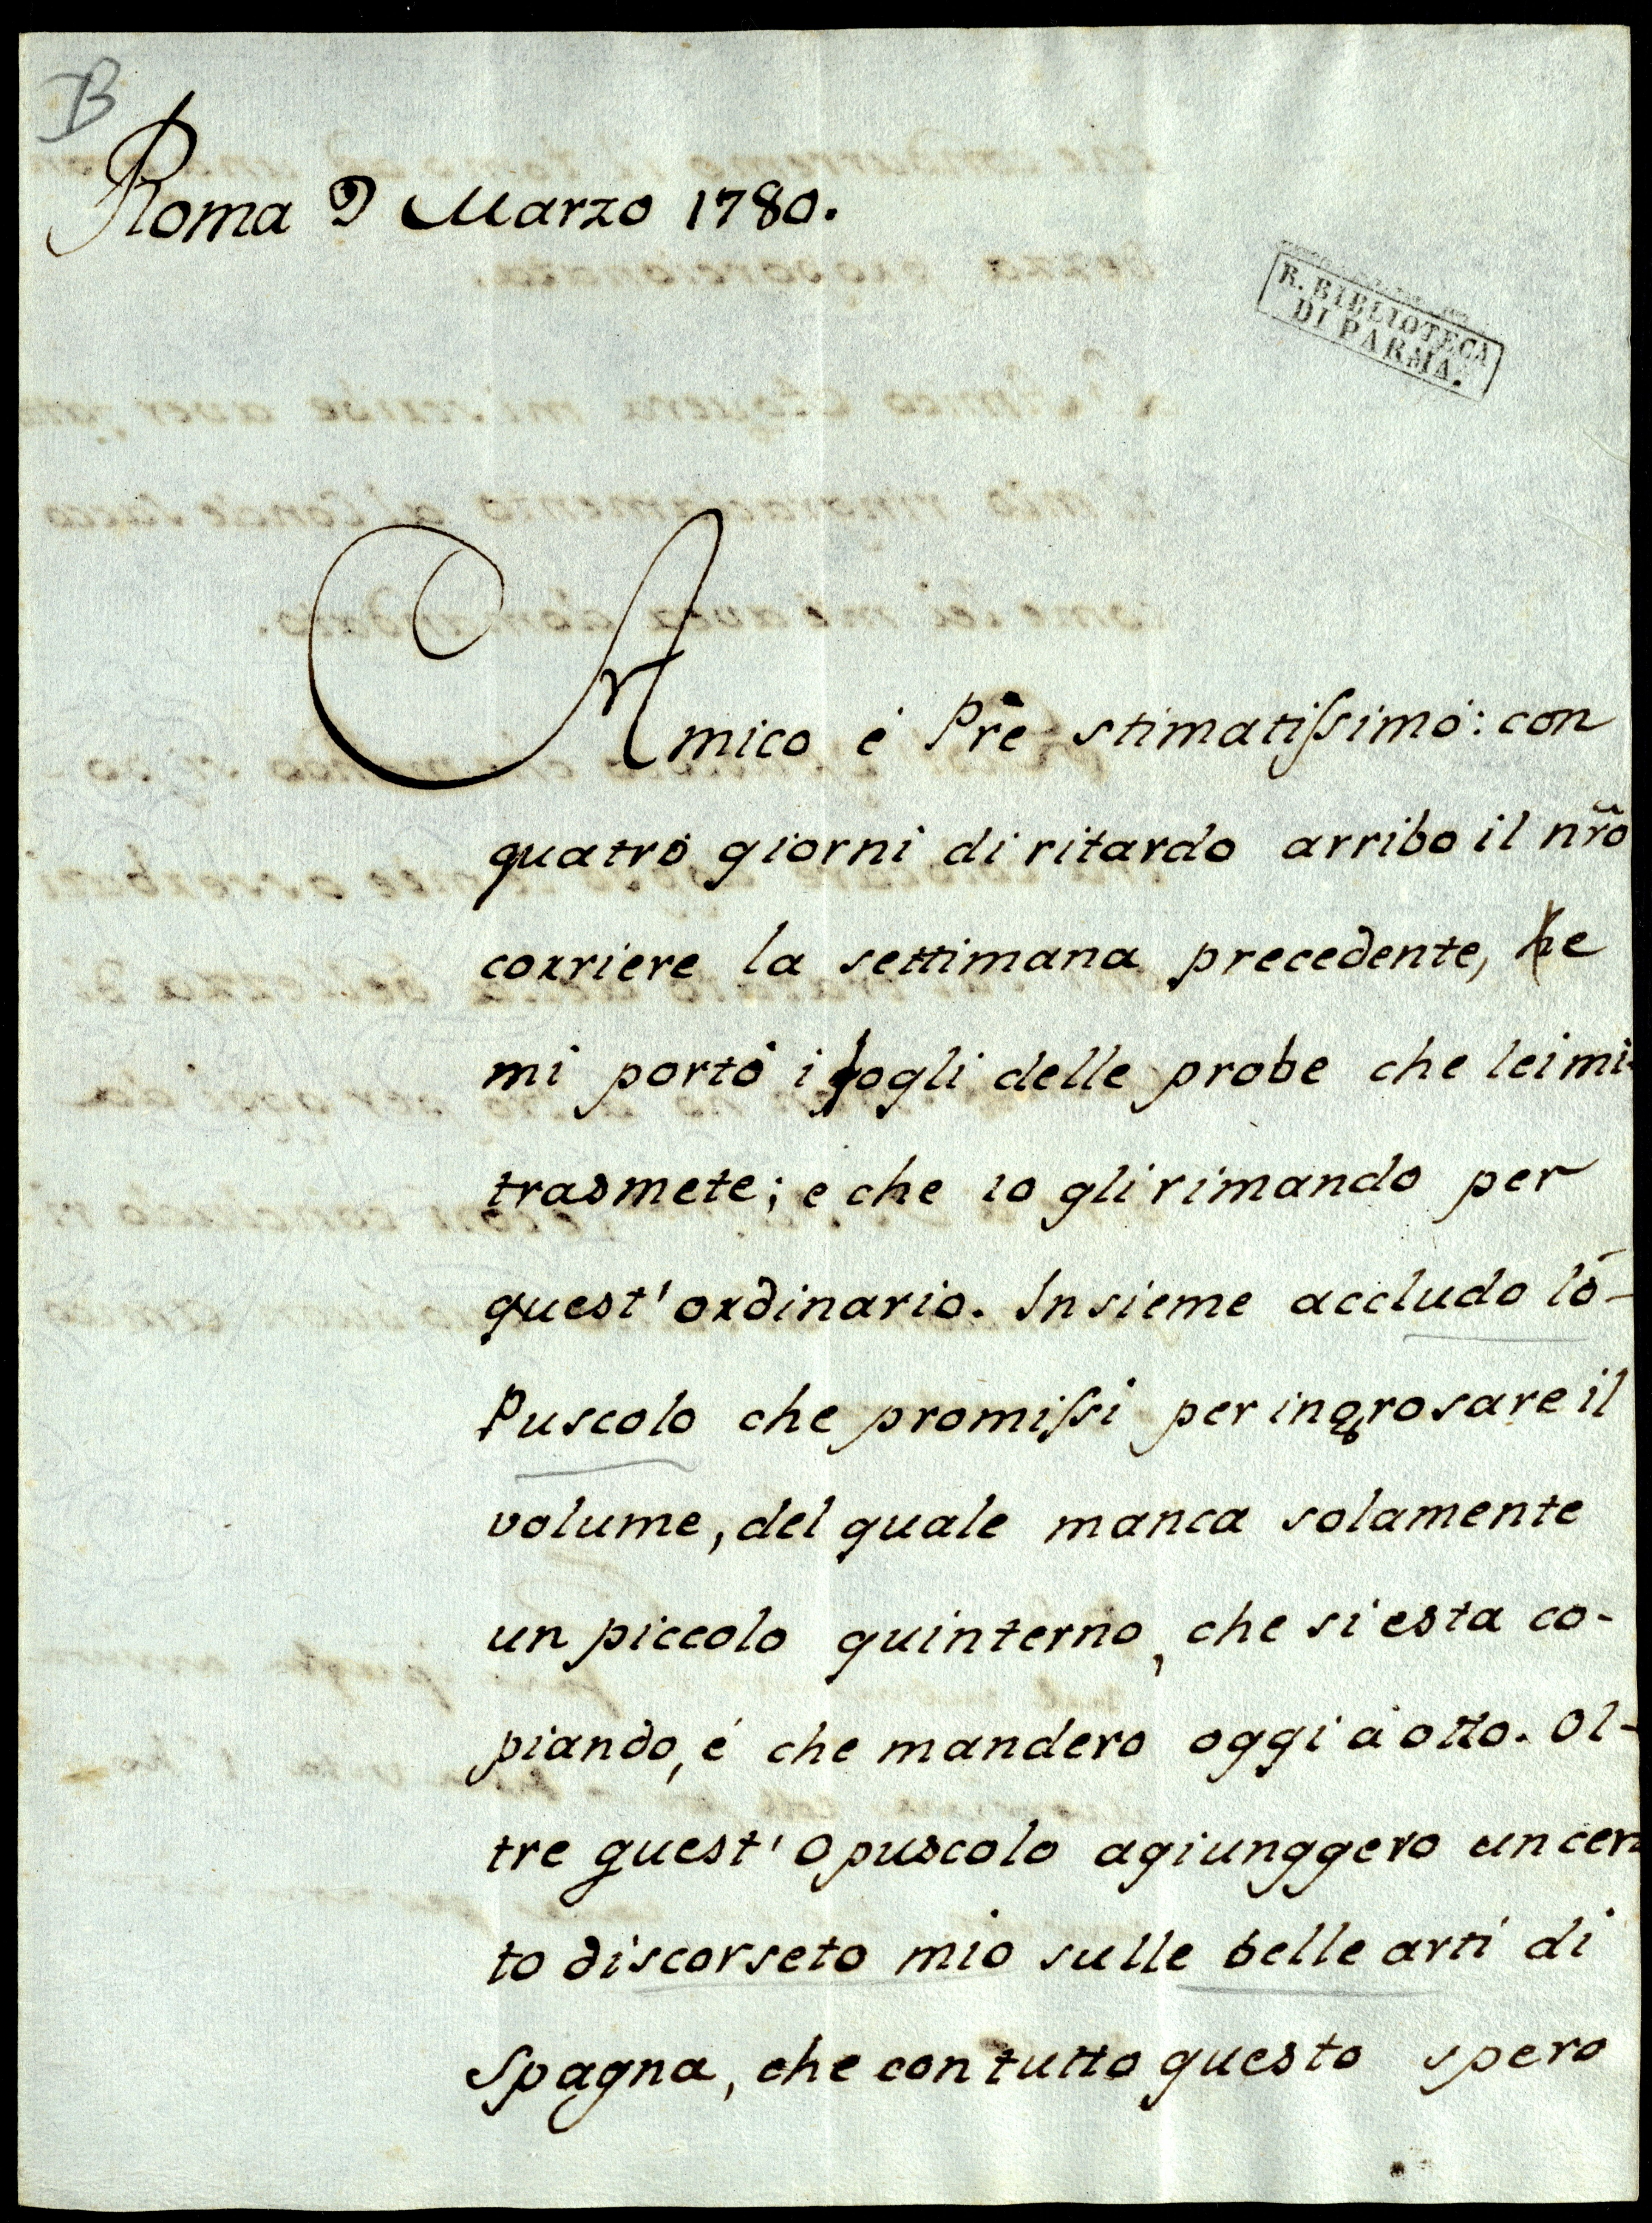 B
Roma 9 Marzo 1780.
R. BIBLIOTECA
DI PARMA.
Amico é Pr̃e stimatiſsimo: con
quatro giorni di ritardo arribo il nr̃o
corriere la settimana precedente, he
mi portó i fogli delle probe che lei mi
trasmete; e che io gli rimando per
quest' ordinario. Insieme accludo ló-
Puscolo che promiſsi per ingrosare il
volume, del quale manca solamente
un piccolo quinterno, che si esta co-
piando, é che mandero oggi à otto. Ol-
tre quest' Opuscolo agiunggero un cer
to discorseto mio sulle belle arti di
Spagna, che con tutto questo spero